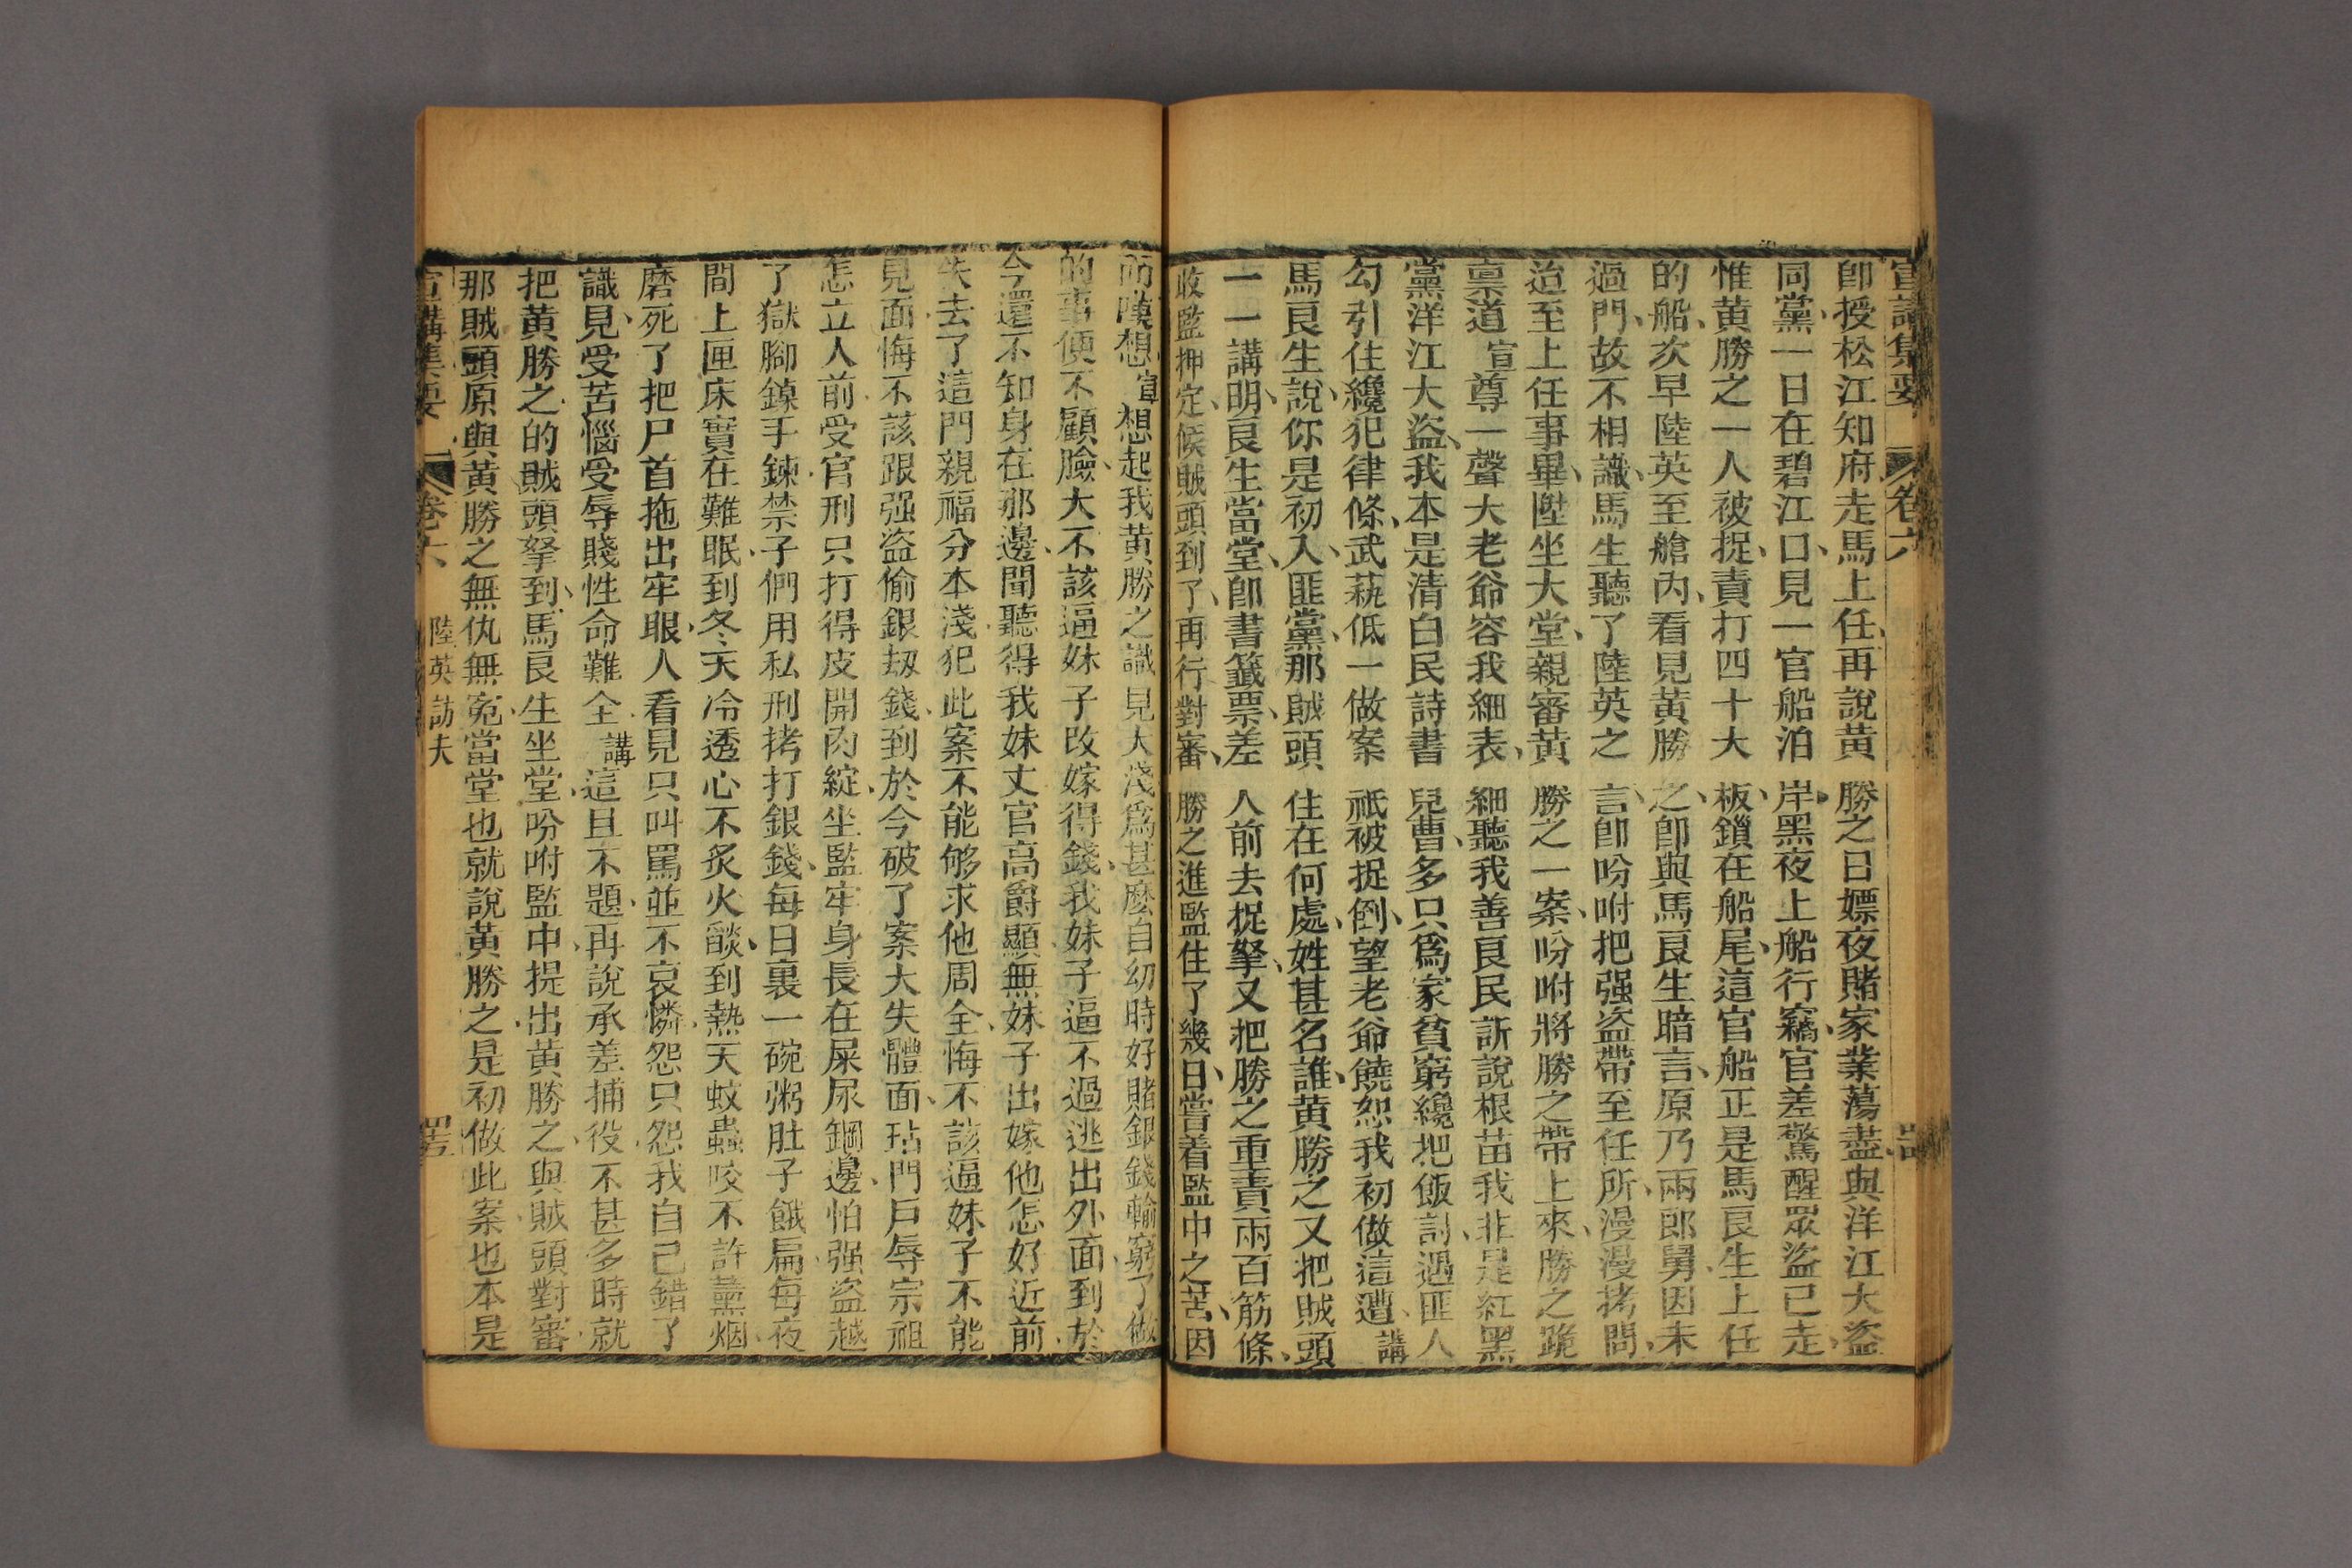 宣講集要 卷六
卽授松江知府走馬上任再說黃勝之日嫖夜賭家業蕩盡與洋江大盜
同黨一日在碧江口見一官船泊岸黑夜上船行竊官差驚醒眾盜已走
惟黃勝之一人被捉責打四十大板鎖在船尾這官船正是馬良生上任
的船次早陸英至艙內看見黃勝之卽與馬良生暗言原乃兩郎舅因未
過門故不相識馬生聽了陸英之言卽吩咐把强盜帶至任所漫漫拷問
迨至上任事畢陞坐大堂親審黃勝之一案吩咐將勝之帶上來勝之跪
禀道宣尊一聲大老爺容我細表細聽我善良民訴說根苗我非是紅黑
黨洋江大盜我本是清白民詩書兒曹多只爲家貧窮纔把飯討遇匪人
勾引住纔犯律條武藝低一做案祇被捉倒望老爺饒恕我初做這遭講
馬良生說你是初入匪黨那賊頭住在何處姓甚名誰黃勝之又把賊頭
一一講明良生當堂卽書籤票差人前去捉拏又把勝之重責兩百筋條
收監押定候賊頭到了再行對審勝之進監住了幾日嘗着監中之苦因
而嘆想宣想起我黃勝之識見大淺爲甚麼自幼時好賭銀錢輸窮了做
的事便不顧臉大不該逼妹子改嫁得錢我妹子逼不過逃出外面到於
今還不知身在那邊聞聽得我妹丈官高爵顯無妹子出嫁他怎好近前
失去了這門親福分本淺犯此案不能够求他周全悔不該逼妹子不能
見面悔不該跟强盜偷銀刼錢到於今破了案大失體面玷門戶辱宗祖
怎立人前受官刑只打得皮開肉綻坐監牢身長在屎尿鋼邊怕强盜越
了獄腳鐐手鍊禁子們用私刑拷打銀錢每日裏一碗粥肚子餓扁每夜
間上匣床實在難眠到冬天冷透心不炙火𦦨到熱天蚊蟲咬不許薰烟
磨死了把尸首拖出牢眼人看見只叫罵並不哀憐怨只怨我自己錯了
識見受苦惱受辱賤性命難全講這且不題再說承差捕役不甚多時就
把黃勝之的賊頭拏到馬良生坐堂吩咐監中提出黃勝之與賊頭對審
那賊頭原與黃勝之無仇無冤當堂也就說黃勝之是初做此案也本是
宣講集要 卷六 陸英訪夫